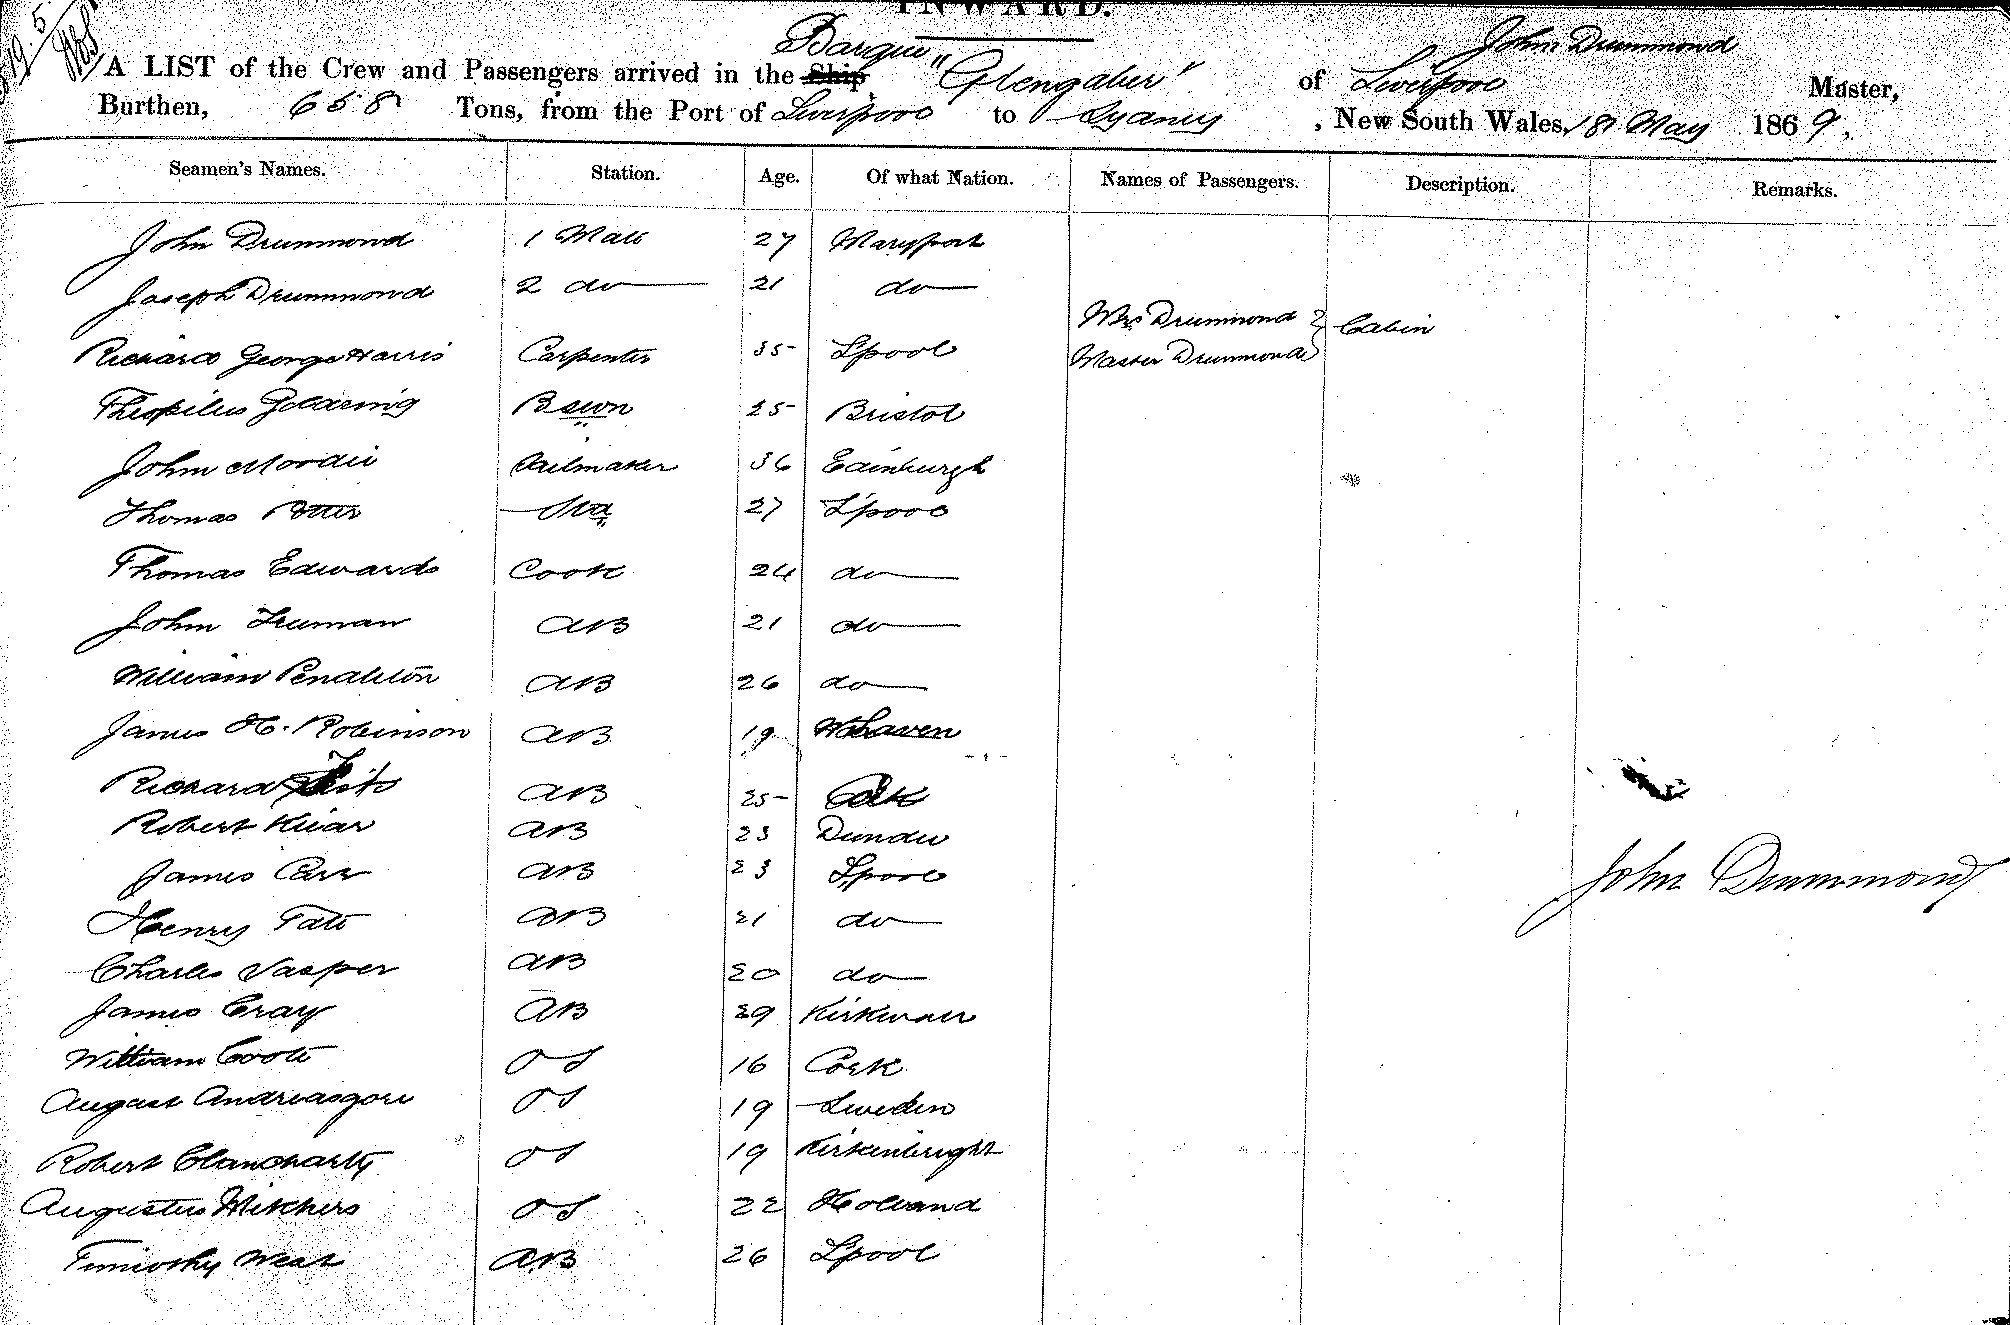 INWARD.
Barque John Drummond
A LIST of the Crew and Passengers arrived in the Ship, "Glengaber" of Liverpool Master,
Burthen, 658 Tons, from the Port of Liverpool to Sydney, New South Wales, 18 May 1869.
Seamen's Names. Station. Age. Of what Nation. Names of Passengers. Description. Remarks.
John Drummond 1 Mate 27 Maryport
Joseph Drummond 2 do 21 do
Mrs Drummond } Cabin
Richard George Harris Carpenter 35 L'pool Master Drummond
Theopilus Goldring Bswn 25 Bristol
John Moodie Sailmaker 36 Edinburgh
Thomas Potter Std 27 L'pool
Thomas Edwards Cook 24 do
John Truman AB 21 do
William Pendleton AB 26 do
James H. Robinson AB 19 W'haven
Richard AB 25 Cork
Robert AB 23 Dundee
James Carr AB 23 L'pool
John Drummond
Henry Tate AB 21 do
Charles Jasper AB 20 do
James Cray AB 29 Kirkwall
William Coote OS 16 Cork
August OS 19 Sweden
Robert Clancharty OS 19 Kirkinbright
Augustus Mitchers OS 22 Holland
Timothy West AB 26 L'pool